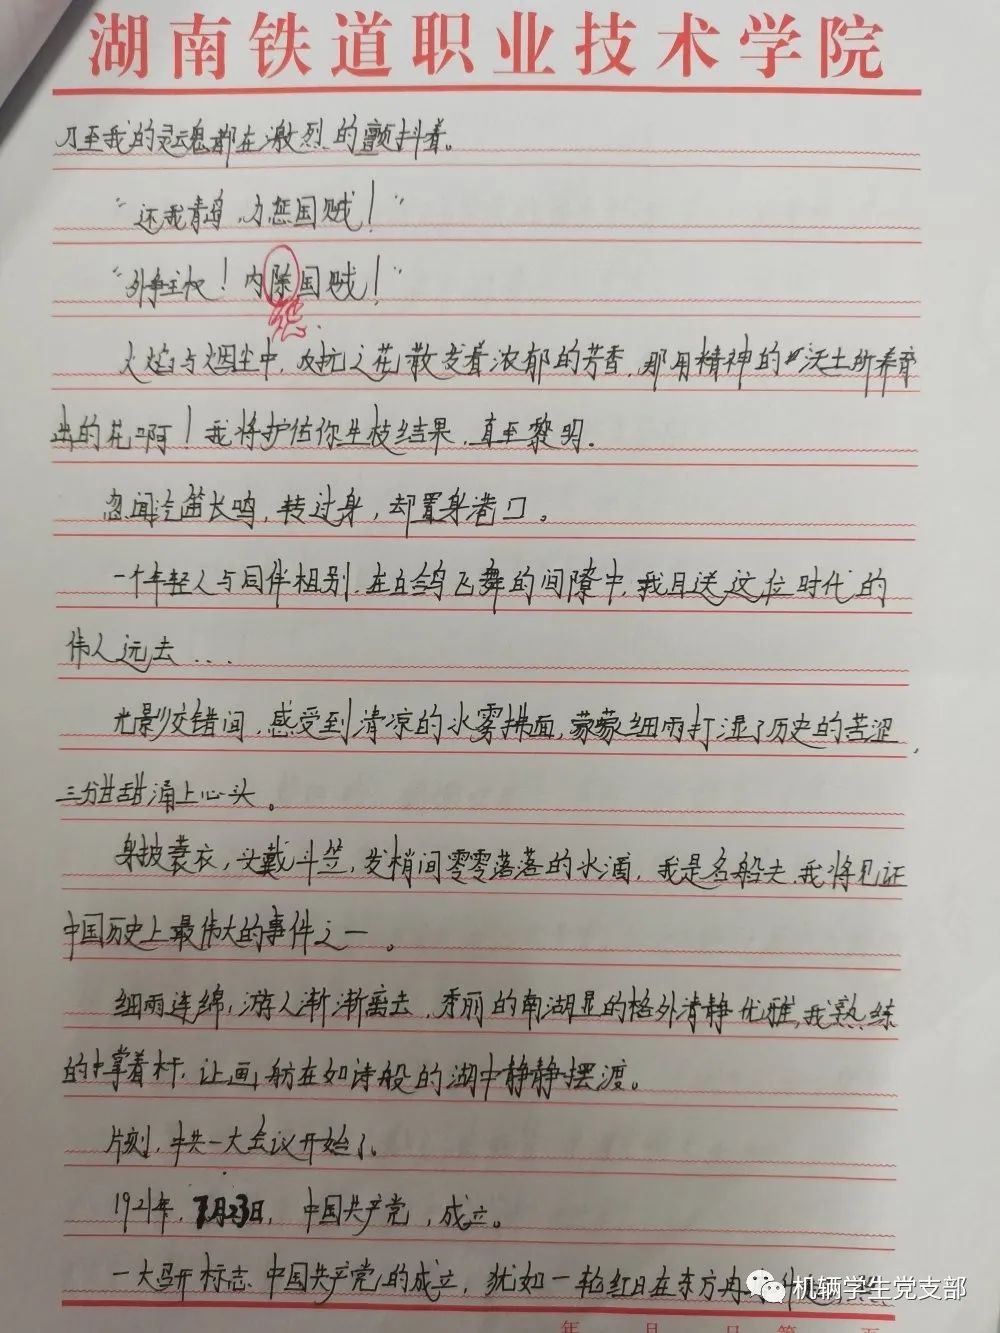 湖南铁道职业技术学院
乃至我的灵魂都在激烈的颤抖着。
“还我青岛，力惩国贼！”
“外争主权！内除国贼！”
惩
火焰与烟尘中，反抗之花散发着浓郁的芳香，那用精神的沃土所养育
出的花啊！我将护佑你生枝结果，直至黎明。
忽闻汽笛长鸣，转过身，却置身港口。
一个年轻人与同伴相别，在白鸽飞舞的间隙中，我目送这位时代的
伟人远去...
光影交错间，感受到清凉的水雾拂面，蒙蒙细雨打湿了历史的苦涩，
三分甘甜涌上心头。
身披蓑衣，头戴斗笠，发梢间零零落落的水滴，我是名船夫，我将见证
中国历史上最伟大的事件之一。
细雨连绵，游人渐渐离去，秀丽的南湖显的格外清静优雅，我熟练
的撑着杆，让画舫在如诗般的湖中静静摆渡。
片刻，中共一大会议开始了。
1921年，7月23日，中国共产党，成立。
一大召开标志中国共产党的成立，犹如一轮红日在东方冉
机辆学生党支部
年 月 日 第 页